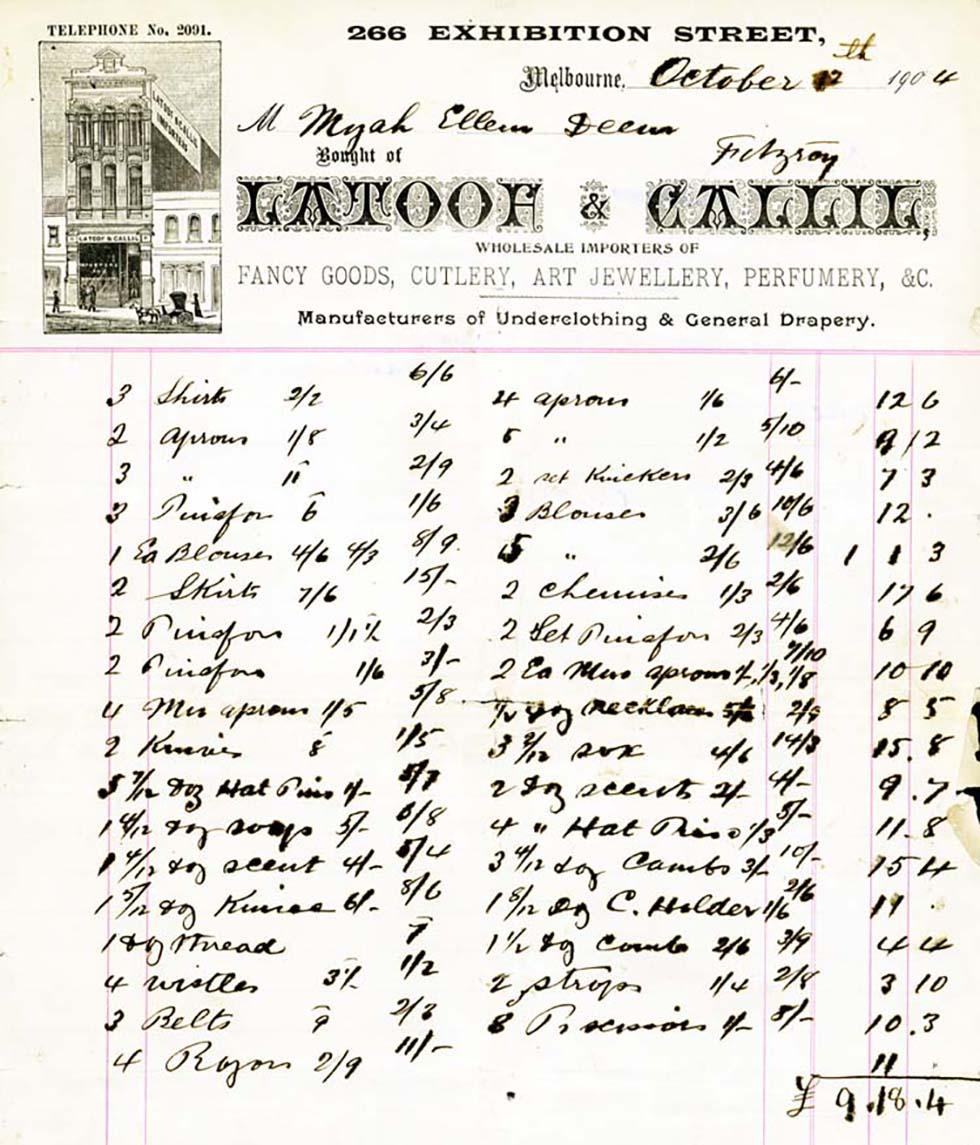 TELEPHONE No. 2091.
266 EXHIBITION STREET,
Melbourne, October 12th 1904
M Myah Ellem Deen
Fitzroy
Bought of
LATOOF & CALLIL
IMPORTERS
LATOOF & CALLIL
LATOOF & CALLIL,
WHOLESALE IMPORTERS OF
FANCY GOODS, CUTLERY, ART JEWELLERY, PERFUMERY, &C.
Manufacturers of Underclothing & General Drapery.
3 Shirts 2/2 6/6 4 aprons 1/6 6/- 12 6
2 Aprons 1/8 3/4 5 " 1/2 5/10 9 / 2
3 " 11 2/9 2 set Knickers 2/3 4/6 7 3
3 Pinafor 6 1/6 3 Blouses 3/6 10/6 12 .
1 Ea Blouses 4/6 4/3 8/9. 5 " 2/6 12/6 1 1 3
2 Skirts 7/6 15/- 2 Chemises 1/3 2/6 17 6
2 Pinafors 1/1½ 2/3 2 Set Pinafor 2/3 4/6 6 9
2 Pinafors 1/6 3/- 2 Ea Mus aprons 1/-, 1/3, 1/8 7/10 10 10
4 Mus aprons 1/5 5/8 ½ doz necklaces 2/9 8 5
2 Knives 8 1/5 3 2/12 sox 4/6 14/3 15. 8
5 7/12 doz Hat Pins 1/- 5/7 2 doz scents 2/- 4/- 9.7
1 4/12 doz soaps 5/- 6/8 4 " Hat Pins 1/3 5/- 11.8
1 4/12 doz scent 4/- 5/4 3 4/12 doz Combs 3/- 10/- 15 4
1 5/12 doz Knives 6/- 8/6 1 8/12 Doz C. Holder 1/6 2/6 11 .
1 doz thread 7 1½ doz Comb 2/6 3/9 4 4
4 wistles 3½ 1/2 2 strops 1/4 2/8 3 10
3 Belts 9 2/3 8 Pr scissors 1/- 8/- 10.3
4 Razors 2/9 11/- 11
£ 9.18.4